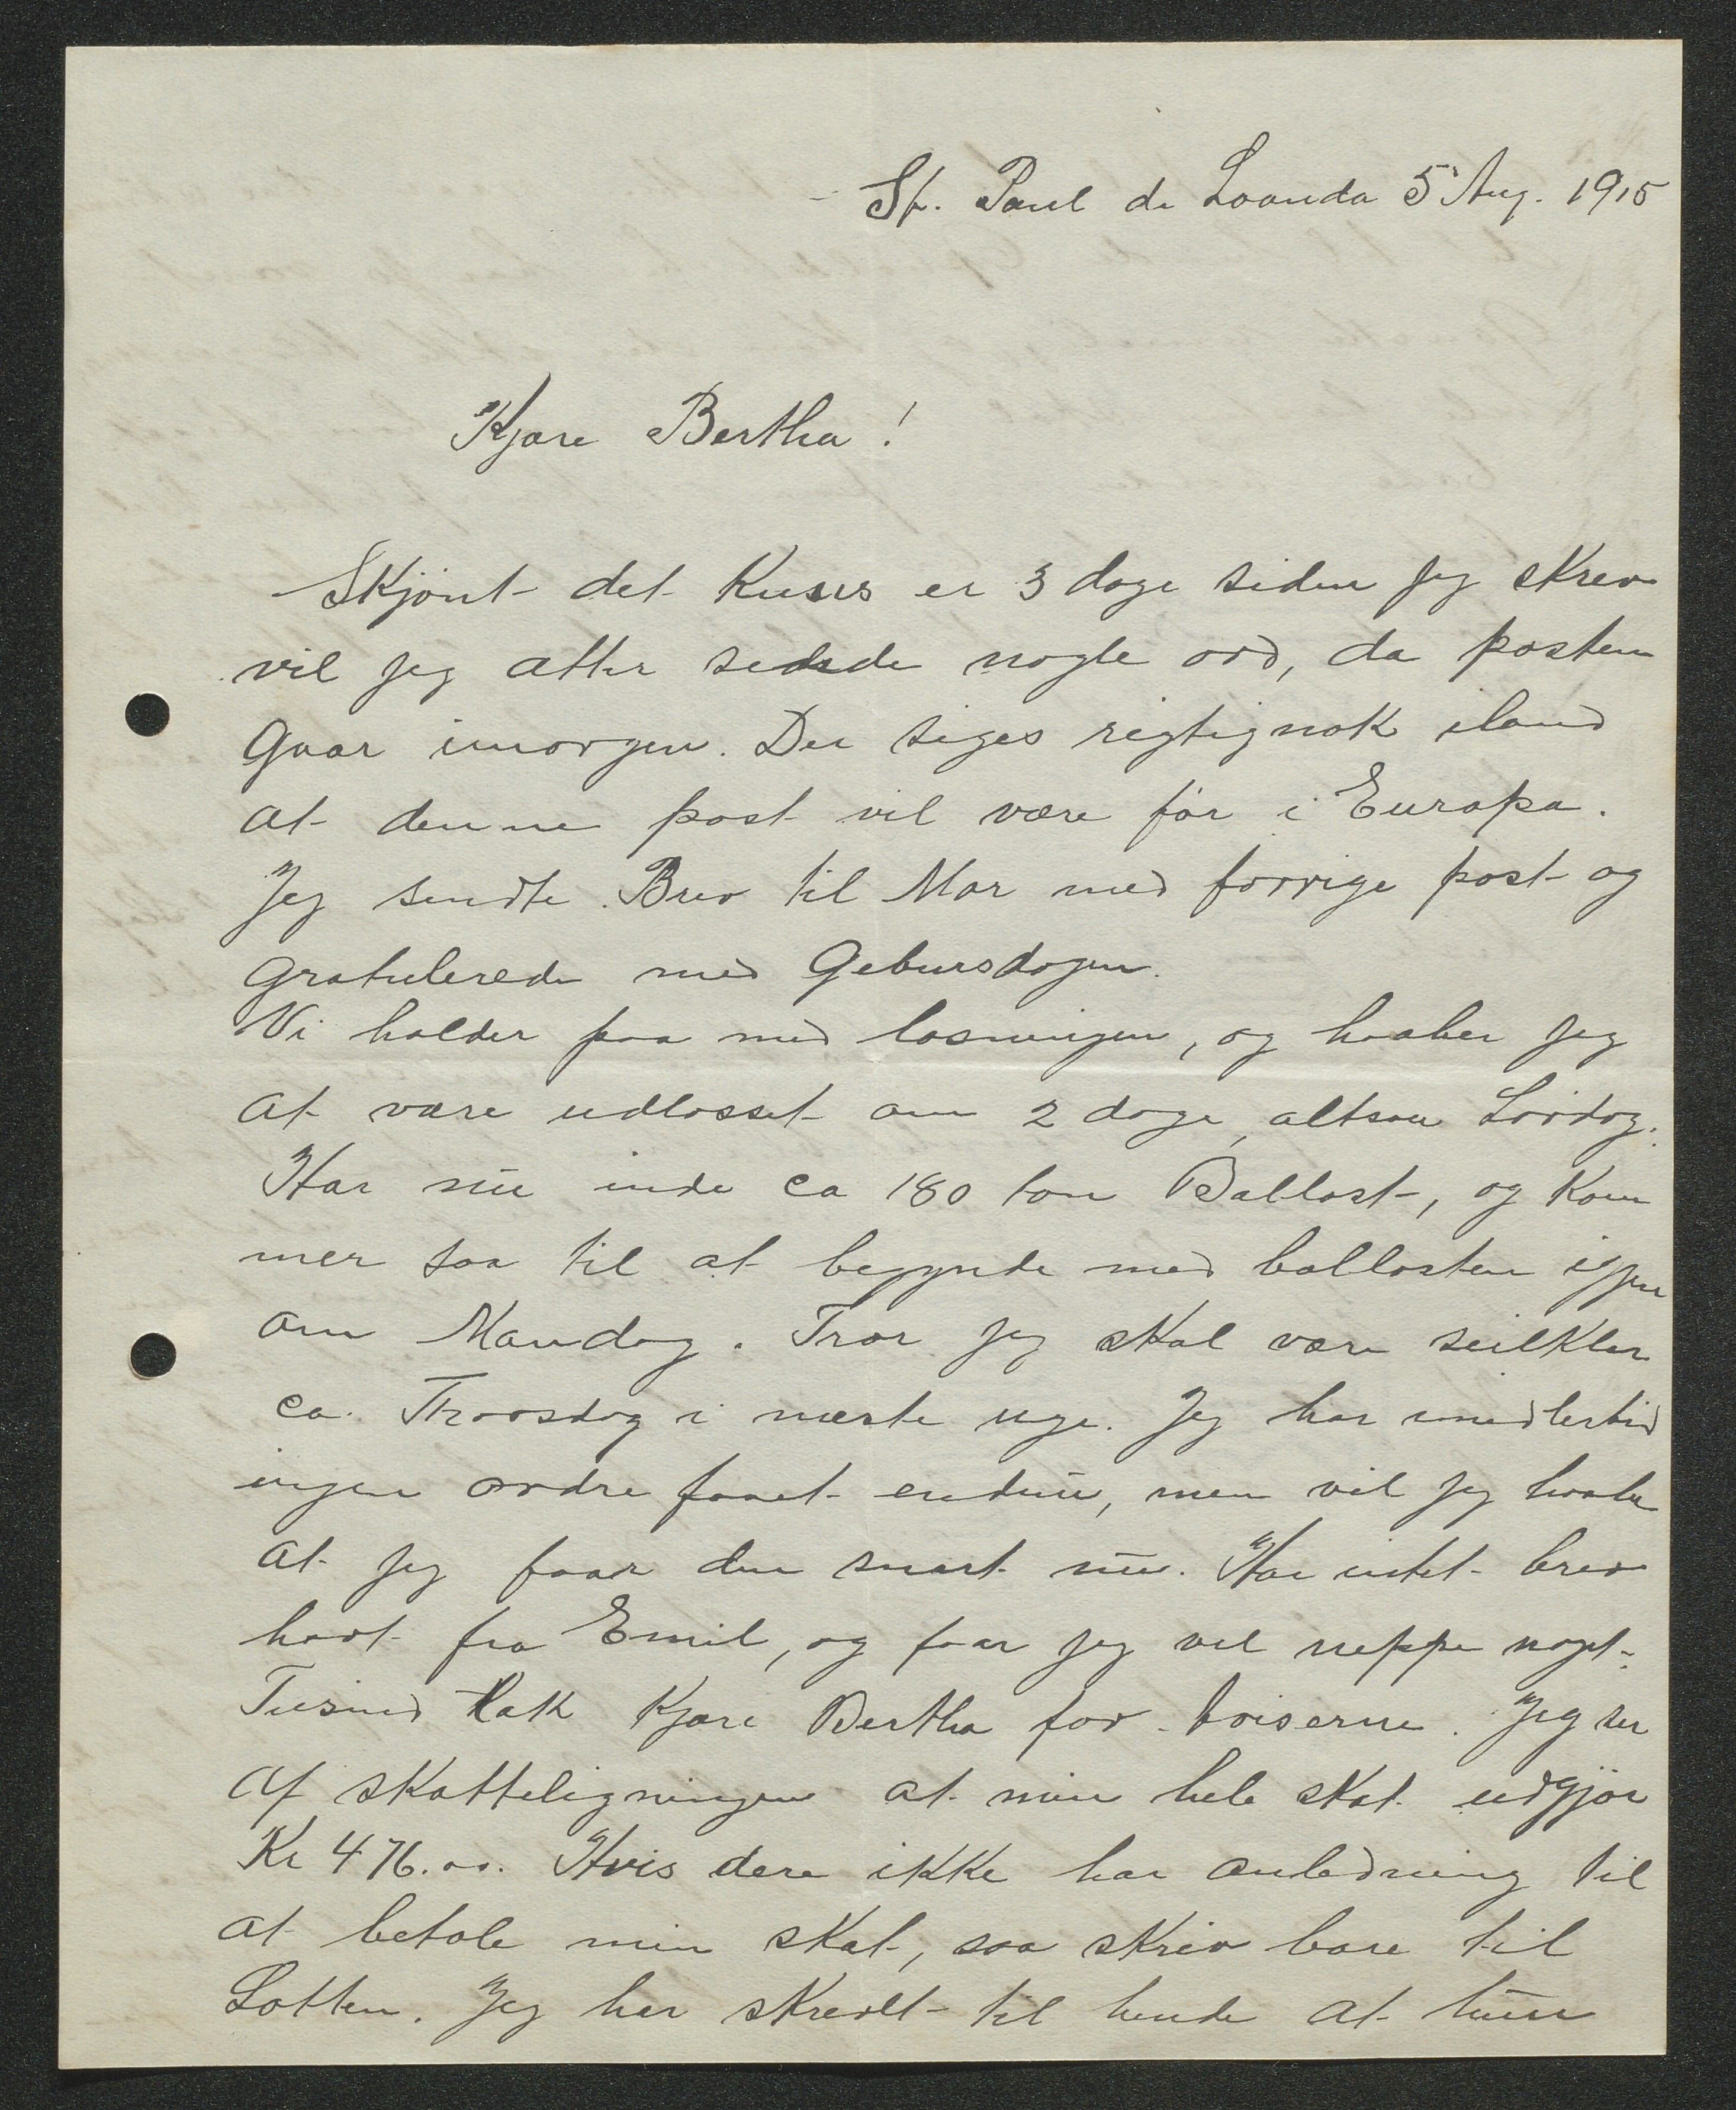 St. Paul de Loanda 5 Aug. 1915
Kjære Bertha!
Skjönt det kuns er 3 dage siden jeg skrev
vil jeg atter sende nogle ord, da posten
gaar imorgen. Der siges rigtignok iland
at denne post vil være för i Europa.
Jeg sendte Brev til Mor med forrige post og
gratulerede med Gebursdagen.
Vi holder paa med losningen, og haaber jeg
at være udlosset om 2 dage, altsaa Lördag.
Har nu inde ca 180 ton Ballast, og kom
mer saa til at begynde med ballasten igjen
om Mandag. Tror jeg skal være seilklar
ca. Thorsdag i næste uge. Jeg har imidlertid
ingen ordre faaet endnu, men vil jeg haabe
at jeg faar den snart nu. Har intet brev
havt fra Emil, og faar jeg vel neppe noget.
Tusind tak kjære Bertha for Aviserne. Jeg ser
af skatteligningen at min hele skat udgjör
Kr 476.00. Hvis dere ikke har anledning til
at betale min skat, saa skriv bare til
Lotten. Jeg har skrevet til hende at hun